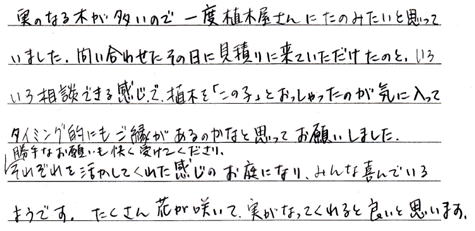 実のなる木が多いので一度植木屋さんにたのみたいと思って
いました。問い合わせたその日に見積りに来ていただけたのと、いろ
いろ相談できる感じで、植木を「この子」とおっしゃったのが気に入って
タイミング的にもご縁があるのかなと思ってお願いしました。
勝手なお願いも快く受けてくださり、
それぞれを活かしてくれた感じのお庭になり、みんな喜んでいる
ようです。たくさん花が咲いて、実がなってくれると良いと思います。